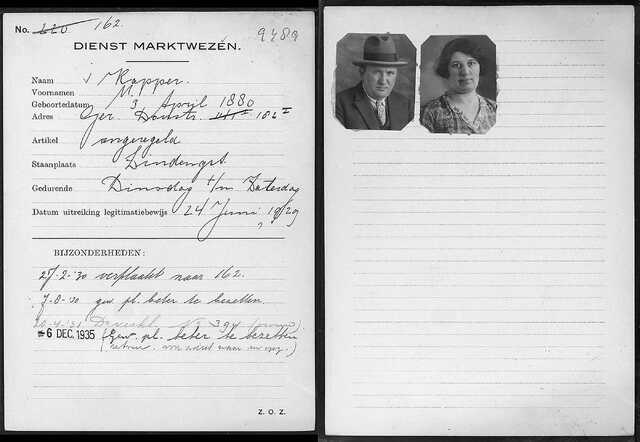 No. 220 162.
9489
DIENST MARKTWEZEN.
Naam Kopper.
Voornamen M.
Geboortedatum 3 April 1880
Adres Ger. Doustr. 182 II
Artikel ongeregeld
Staanplaats Lindengr.
Gedurende Dinsdag t/m Zaterdag
Datum uitreiking legitimatiebewijs 24 Juni 1929
BIJZONDERHEDEN:
27-2-'30 verplaatst naar 162.
7-8-30 gew. pl. beter te bezetten.
394
-6 DEC. 1935 (Gew. pl. beter te bezetten
Z. O. Z.